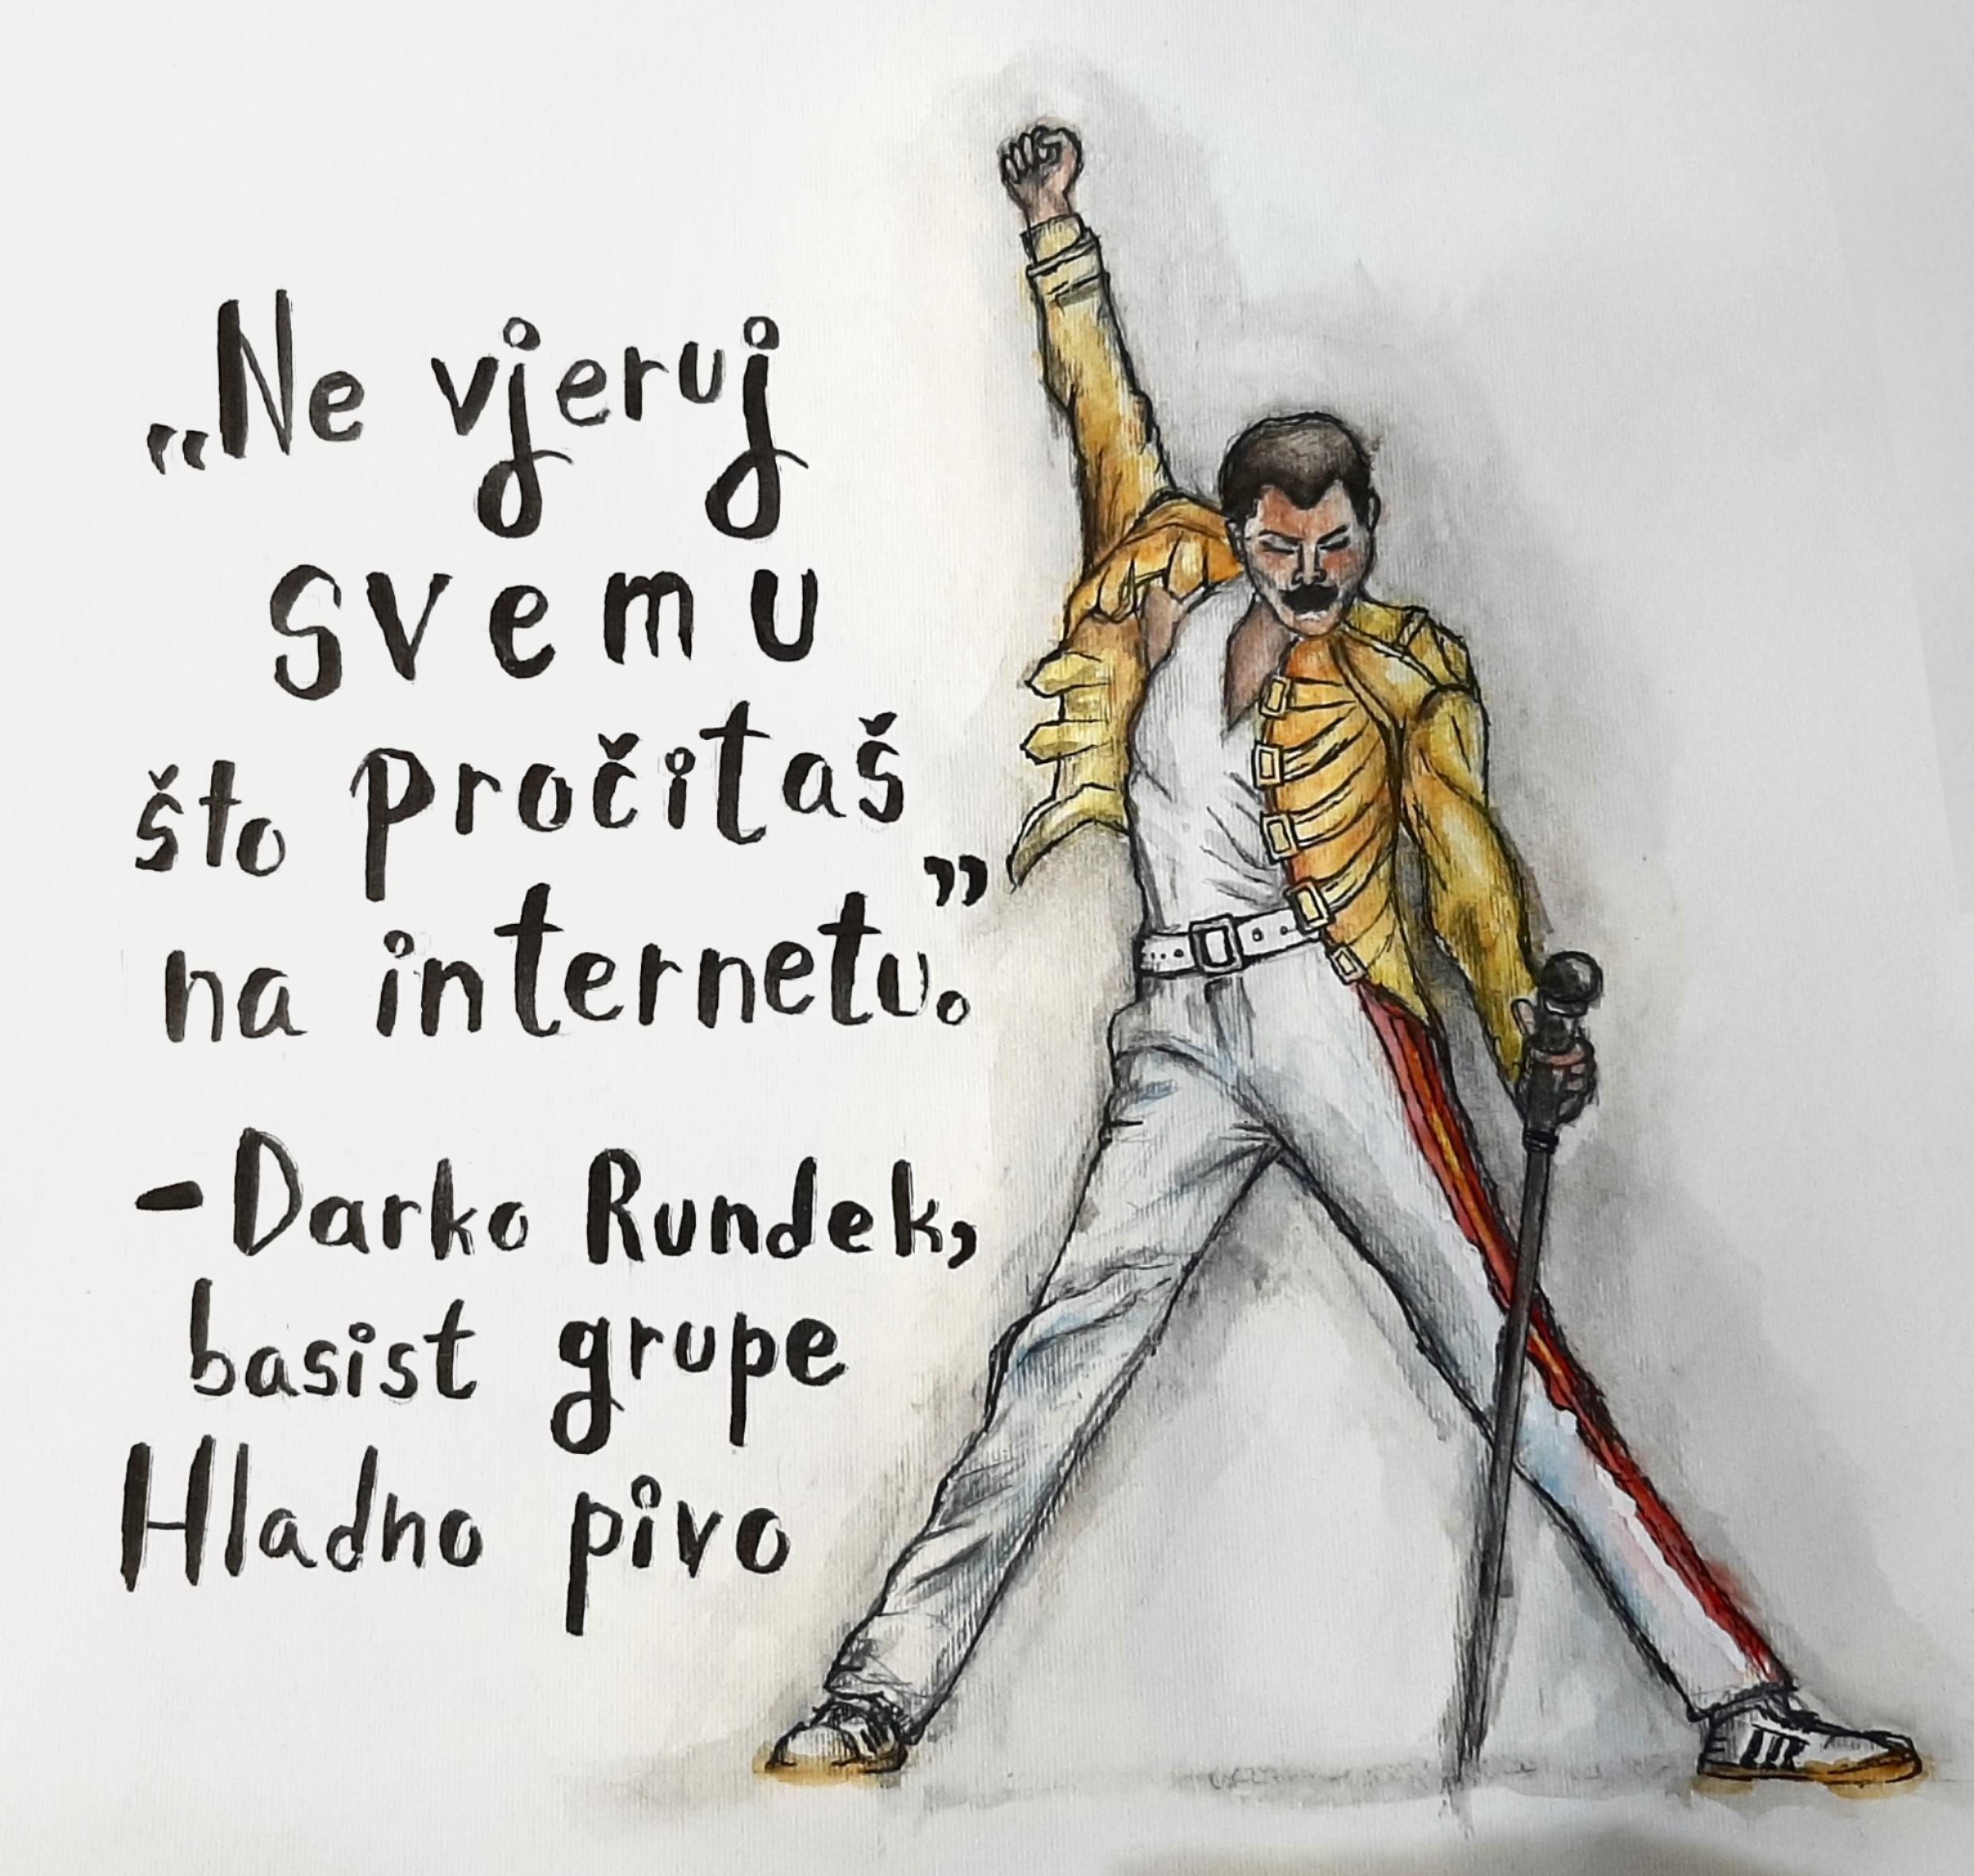 „Ne vjeruj
svemu
što pročitaš
na internetu.”
-Darko Rundek,
basist grupe
Hladno pivo